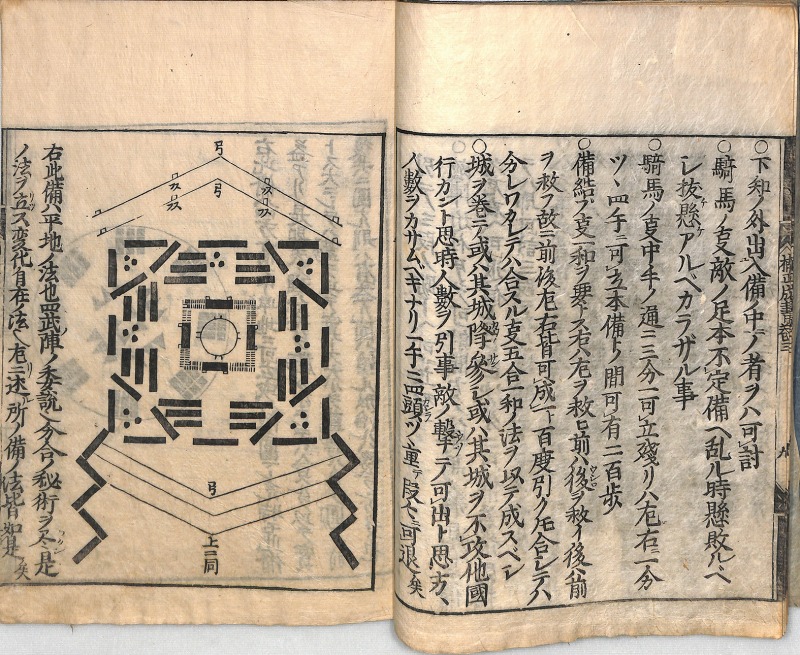 ○下知ノ外出ハ備中ノ者ヲハ可討
○騎馬ノ支敵ノ足本不定備ヘ乱ル時懸敗ルベ
シ抜懸アルベカラザル事
○騎馬ノ支中手ノ通ニ三分一可立残リハ左右ニ一分
ツヽ四手ニ可立本備トノ間可有二百歩
備結ノ支一和ヲ要トス右ハ左ヲ救ヒ前ハ後ヲ救イ後ハ前
ヲ救フ故ニ前後左右皆可成一丁百度引クモ合レテハ
分レワカレテハ合スル支五合一和ノ法ヲ以テ成スベシ
○城ヲ巻テ或ハ其城降参シ或ハ其城ヲ不攻他國
行カント思時人数ヲ引事敵ノ撃テノ可出ト思方ヘ
人数ヲカサムベキナリ一手ニ二頭ツヽ重テ段々ニ可退矣
弓
弓
上ニ同
右此備ハ平地ノ法也武陣ノ委説分合ノ秘術ヲ尽ス是
ノ法ヲ立ス変化自在ノ法ハ右ニ述ル所ノ備ノ法皆如是矣